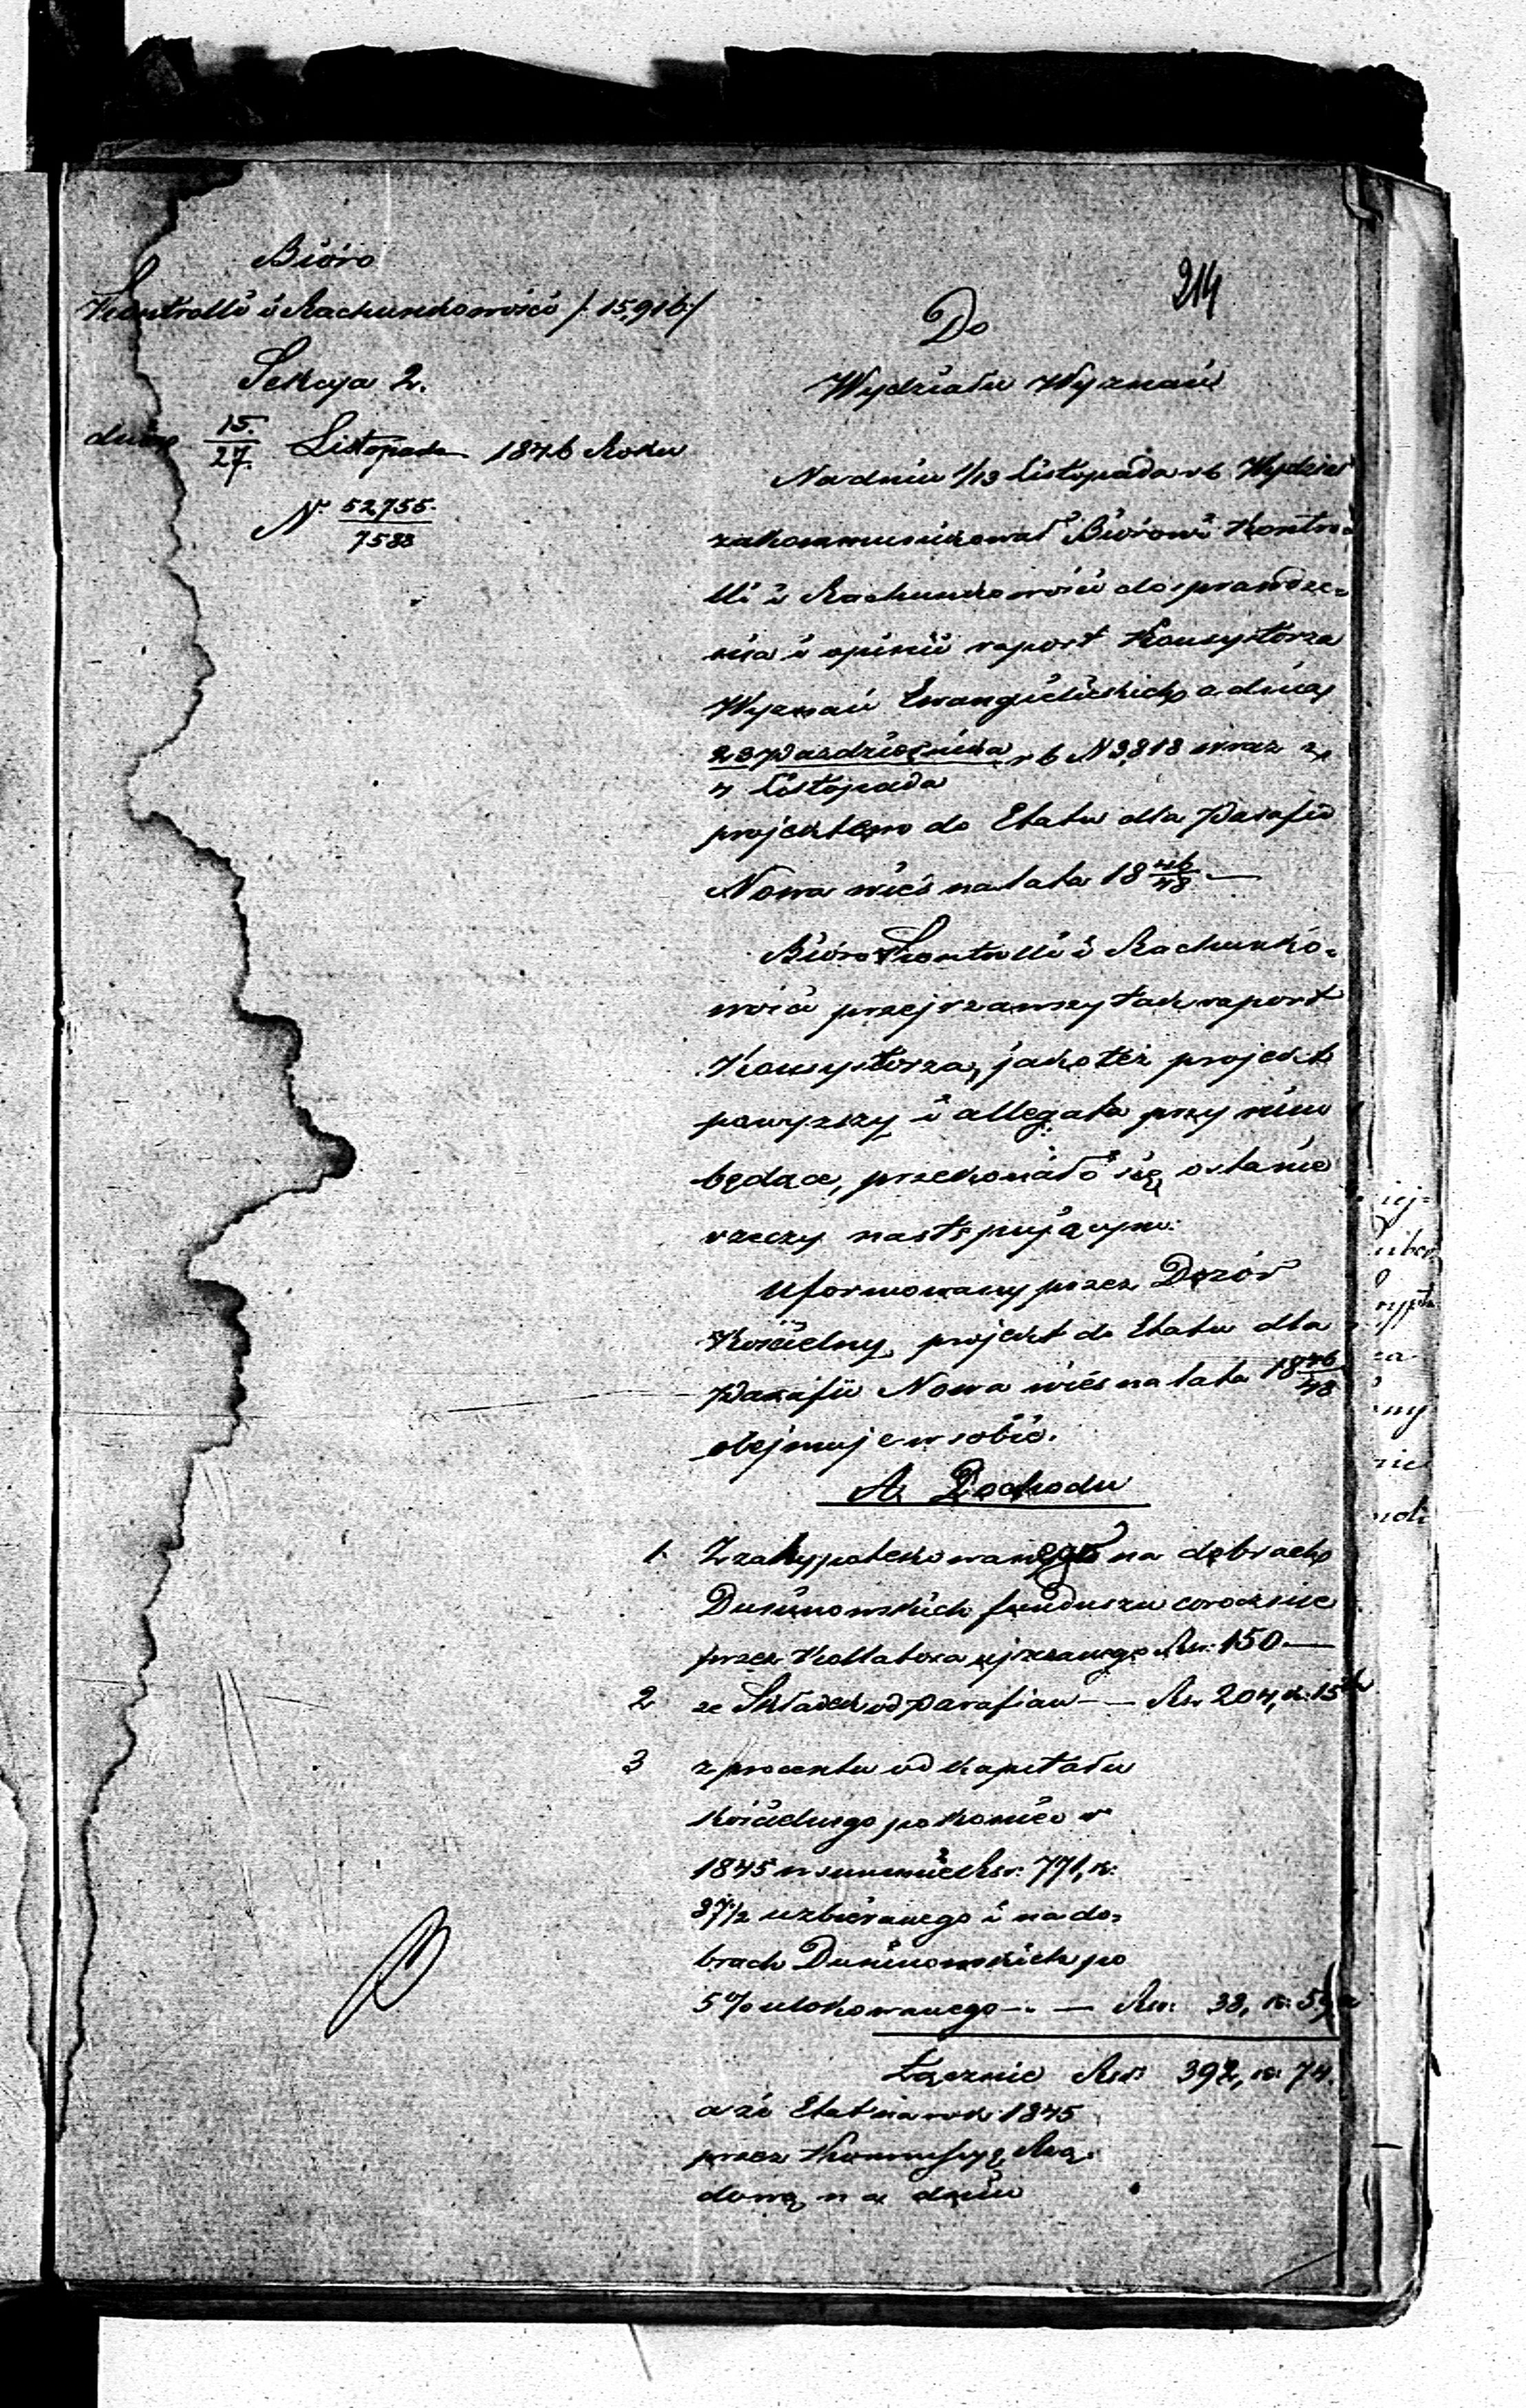 214
Bióro
Kontrolli i Rachunkowości /: 15,916 :/
Sekcya 2.
dnia 15/27 Listopada 1846 Roku
N 52755/7583
Do
Wydziału Wyznań
Na dniu 1/13 Listopada r b Wydział
zakommunikował Biórowi Kontro-
lli i Rachunkowości do sprawdze-
nia i opinii raport Konsystorza
Wyznań Ewangielickich z dnia
23 Pazdziernika r b N 3818 wraz z
4 Listopada
projektem do Etatu dla Parafii
Nowa wieś na lata 18 46/48 —
Bióro Kontrolli i Rachunko-
wości przejrzawszy tak raport
Konsystorza, jako też projekt
powyższy i allegata przy nim
będące, przekonało się o stanie
rzeczy następującym:
Uformowany przez Dozór
Kościelny projekt do Etatu dla
Parafii Nowa wieś na lata 18 46/48
obejmuje w sobie.
A. Dochodu
1. Z zahypotekowanego na dobrach
Duninowskich funduszu corocznie
przez Kollatora Rsr. 150 —
2 ze Składek od parafian — — Rsr 204, k. 15
3 z procentu od kapitału
kościelnego po koniec r
1845 w summie Rsr. 771, k.
37½ uzbieranego i na do-
brach Duninowskich po
5 % ulokowanego — — Rsr. 38, k. 59
Łącznie Rsr. 392, k. 74.
a że Etat na rok 1845
przez Kommissyą Rzą-
dową na dniu